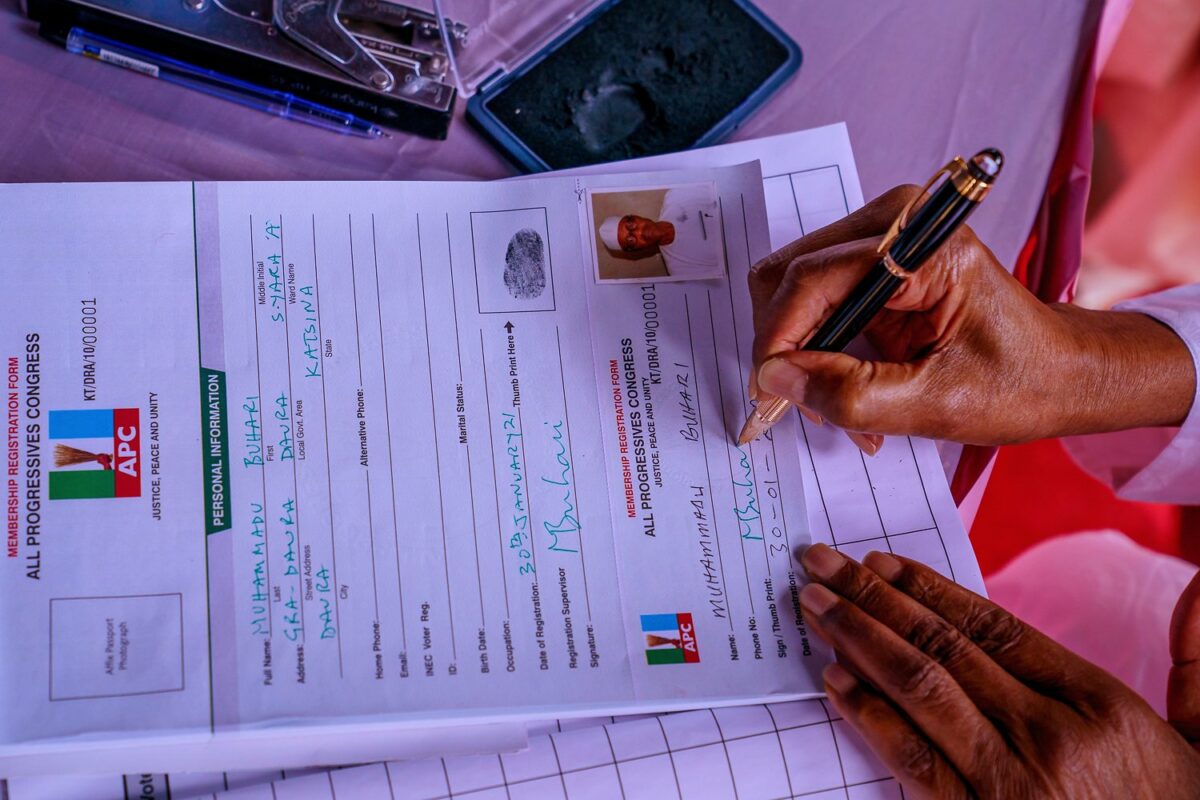 MEMBERSHIP REGISTRATION FORM
ALL PROGRESSIVES CONGRESS
KT/DRA/10/00001
APC
JUSTICE, PEACE AND UNITY
Affix Passport
Photograph
PERSONAL INFORMATION
Full Name: MUHAMMADU BUHARI
Last First Middle Initial
Address: GRA-DAURA DAURA S/YARA 'A'
Street Address Local Govt. Area Ward Name
DAURA KATSINA
City State
Home Phone: Alternative Phone:
Email:
INEC Voter Reg.
ID: Marital Status:
Birth Date:
Occupation: Thumb Print Here
Date of Registration: 30th, JANUARY 21
Registration Supervisor
Signature: MBuhari
MEMBERSHIP REGISTRATION FORM
ALL PROGRESSIVES CONGRESS
JUSTICE, PEACE AND UNITY
KT/DRA/10/00001
APC
Name: MUHAMMADU BUHARI
Phone No:
Sign / Thumb Print: MBuhari
Date of Registration: 30-01-2